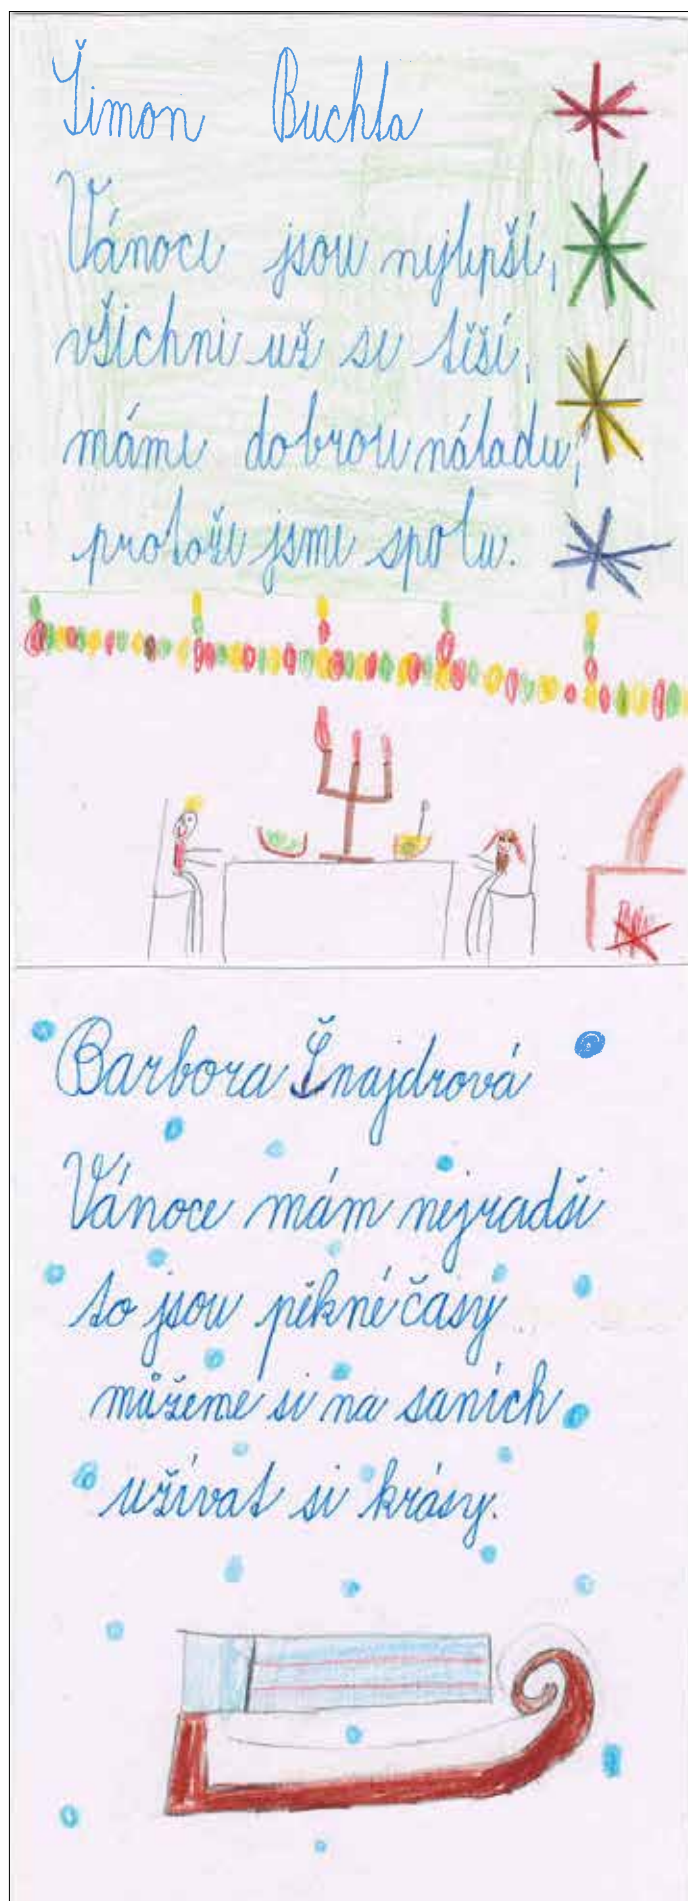 Šimon Buchta
Vánoce jsou nejlepší,
všichni už se těší,
máme dobrou náladu,
protože jsme spolu.
Barbora Šnajdrová
Vánoce mám nejradši
to jsou pěkné časy
můžeme si na saních
užívat si krásy.